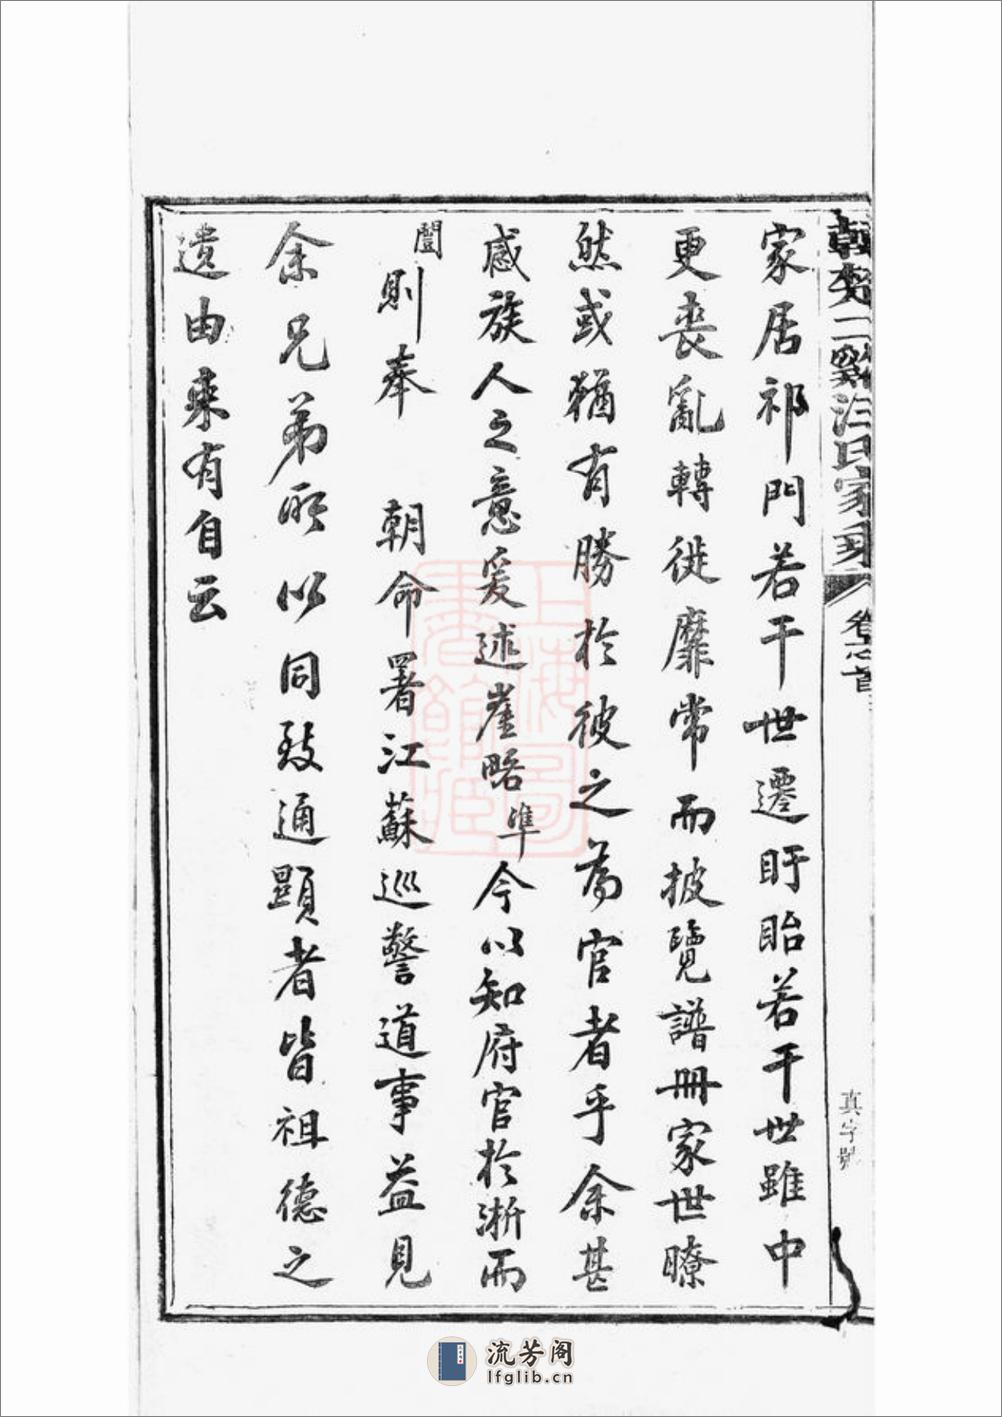 家居祁門若干世遷盱眙若干世雖中
更喪亂轉徙靡常而披覽譜冊家世瞭
然或猶有勝於彼之為官者乎余甚
感族人之意爰述崖略準今以知府官於浙而
闓則奉 朝命署江蘇巡警道事益見
余兄弟所以同致通顯者皆祖德之
遺由來有自云
二谿汪氏家乘
卷之首
真字號
上海圖書館藏
流芳阁
lfglib.cn